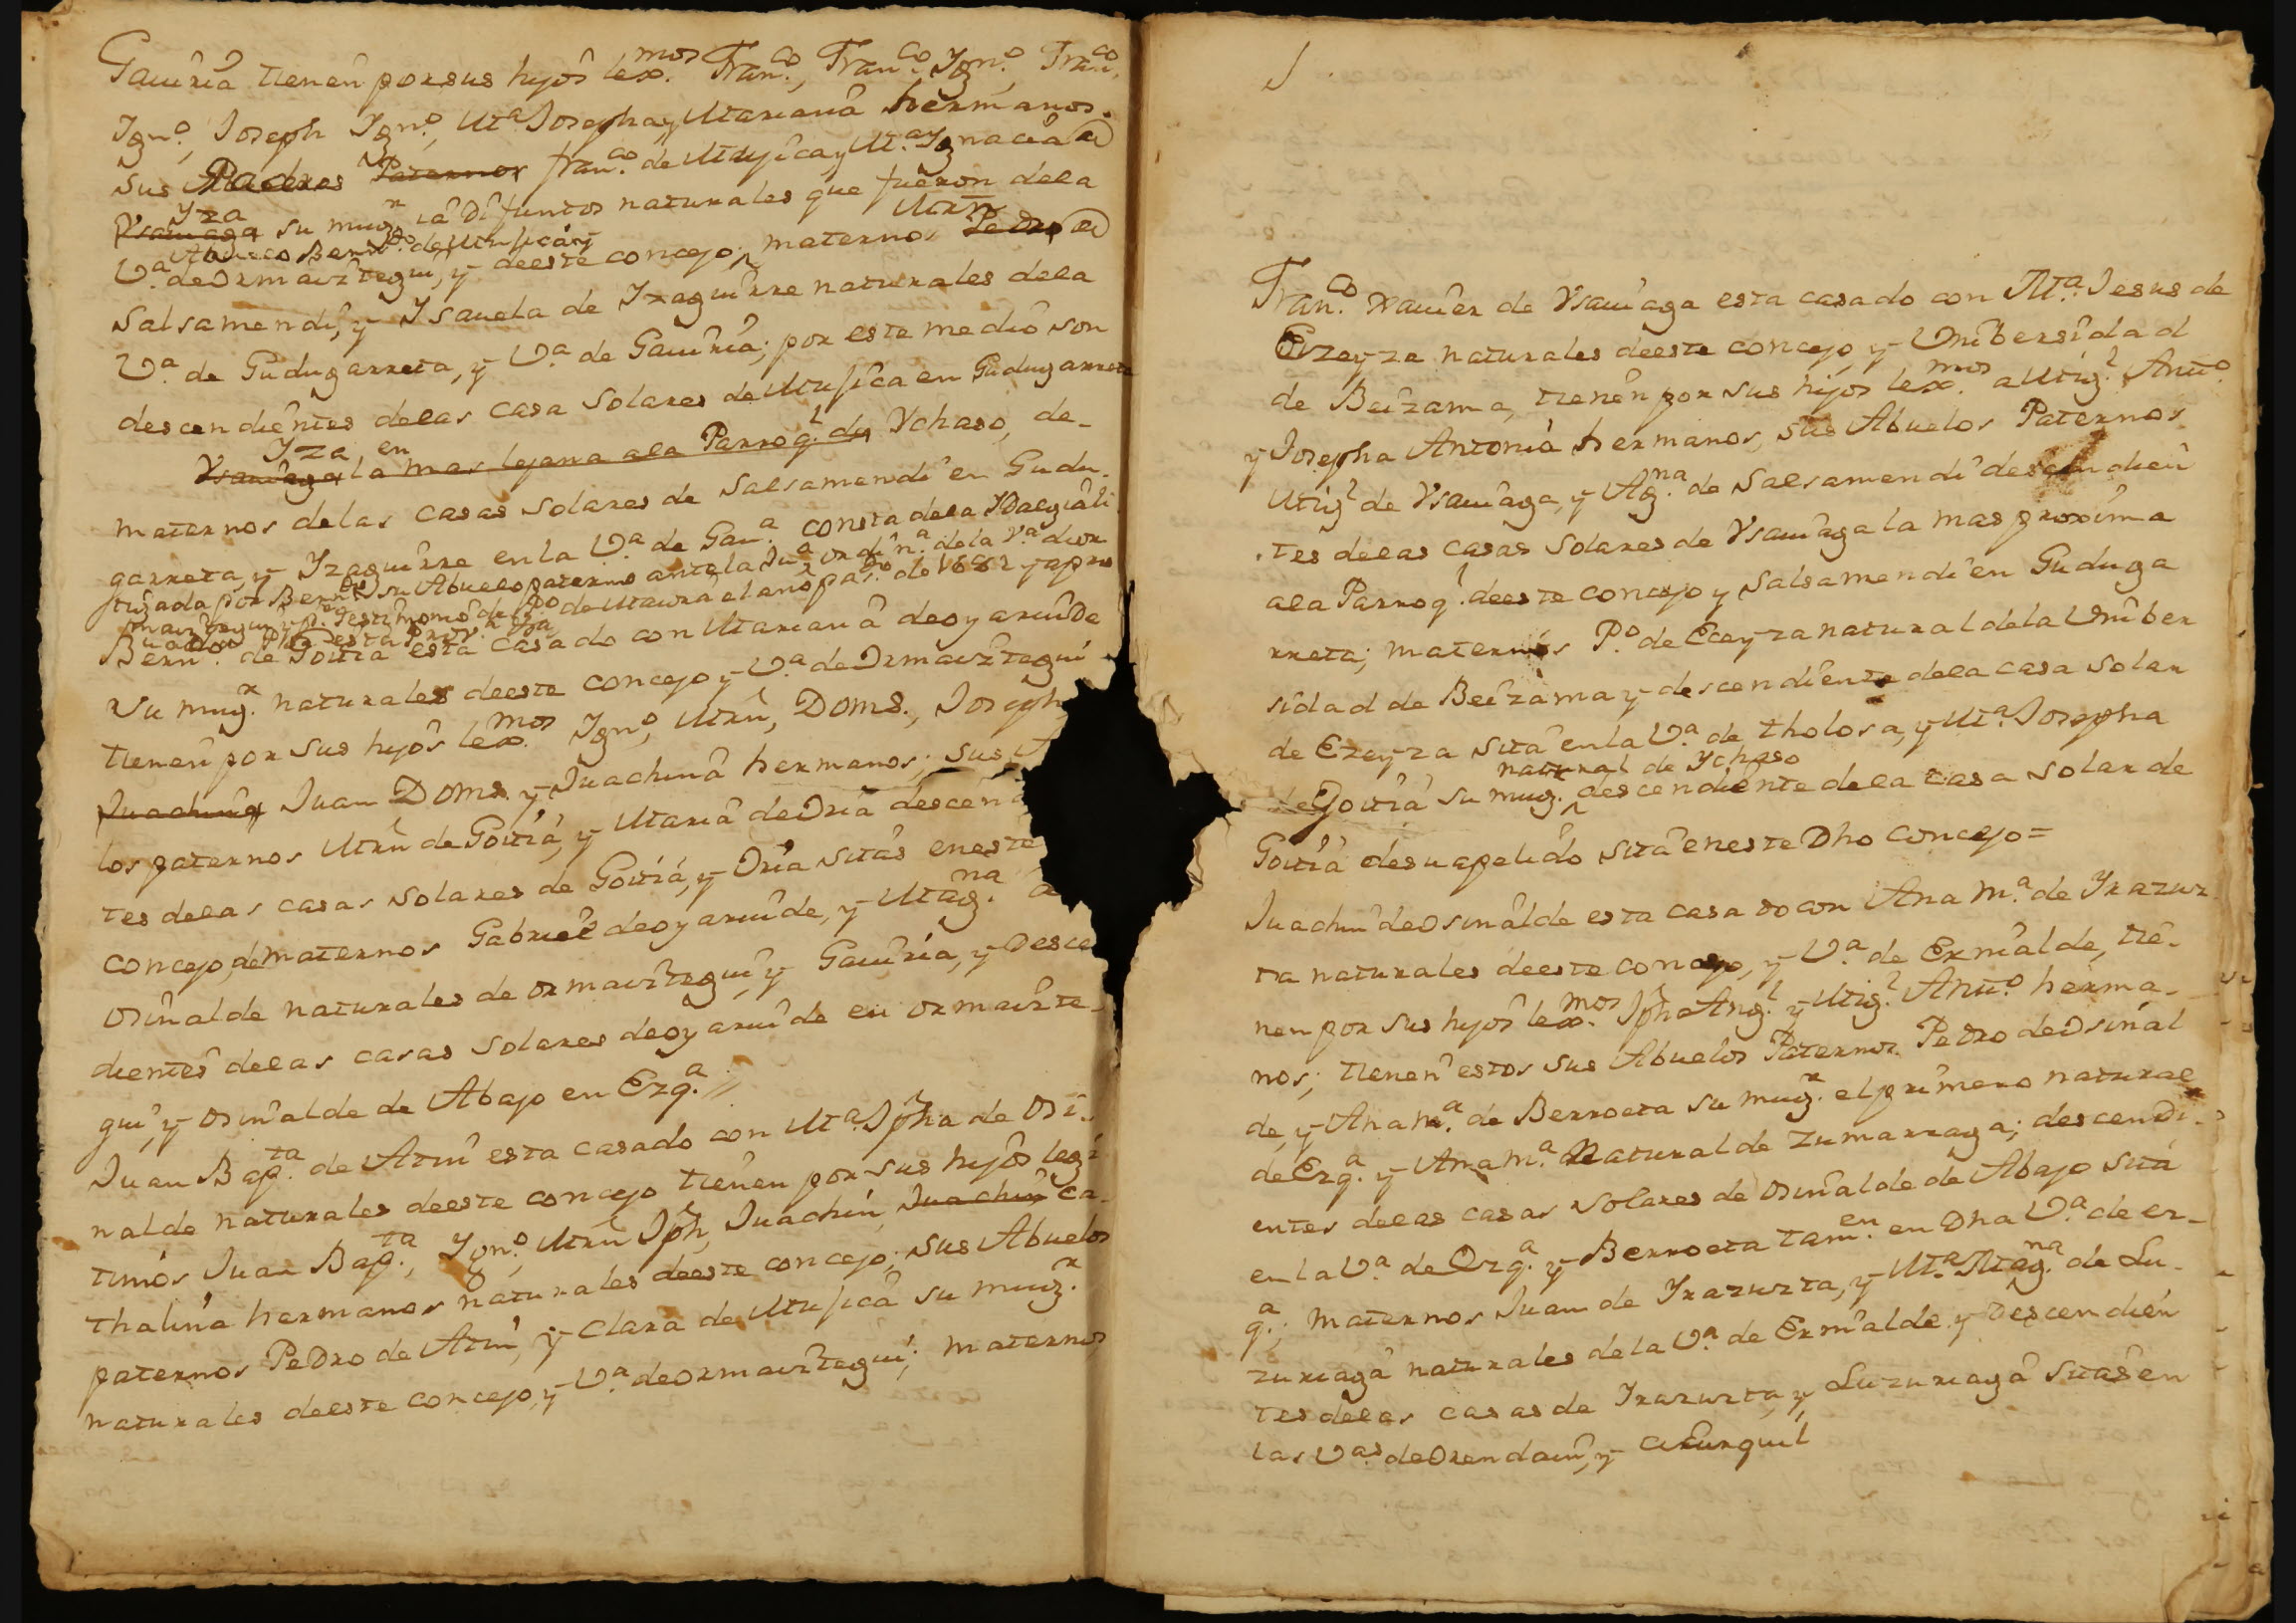 Gauiria tienen por sus hyos lex.mos Fran.co, Fran.co Ygn.o, Fran.co
Ygn.o, Joseph Ygn.o, M.a Josepha y Mariana hermanos.
sus Padres Paternos fran.co de Mujica y M.a Ygnacia de
Yza
Ysauiaga su mug.r ia difuntos naturales que fueron dela
Abuelo Bern.do de Mujica y
V.a de Ormaiztegui, y deeste concejo, maternos Pedro de
Mrn
Salsamendi, y Ysauela de Yzaguirre naturales dela
V.a de Gudugarreta, y V.a de Gauiria; por este medio son
descendientes delas casa Solares de Mujica en Gudugarreta
Yza en
Ysauiaga la mas lejana ala Parroq.l de Ychaso, de-
maternos delas casas solares de Salsamendi en Gudu-
garreta, y Yzaguirre enla V.a de Gau.a consta dela Ydalguia li
tigada por Bern.do su Abuelo paterno ante la Ju.a ordin.a dela V.a de or
maiztegui y testimonio de P.o de Maura el año pas.do de 1682 y apro
Bern.o de Goitia esta casado con Mariana de oyaruide
su mug.r naturales deeste concejo y V.a de Ormaiztegui
tienen por sus hyos lex.mos Ygn.o, Mrn, Doms., Joseph,
Juachina Juan Doms. y Juachina hermanos; sus A
los paternos Mrn de Goitia, y Maria de Oria descen
tes delas casas solares de Goitia, y Oria sitas eneste
concejo, de maternos Gabriel de oyaruide, y Mag.na
osinalde naturales de ormaiztegui, y Gauiria, y Desce
dientes delas casas solares de oyaruide en ormaizte-
gui, y osinalde de Abajo en Ezq.a //
Juan Bap.ta de Atin esta casado con M.a Jpha de osi-
nalde naturales deeste concejo tienen por sus hyos legi
timos Juan Bap.ta, Ygn.o, Mrn Jph, Juachin, Juachin Ca-
thalina hermanos naturales deeste concejo; sus Abuelos
paternos Pedro de Atin, y Clara de Mujica su mug.r
naturales deeste concejo, y V.a de ormaiztegui; maternos
Fran.co Xauier de Ysauiaga esta casado con M.a Jesus de
Ezeyza naturales deeste concejo y Unibersidad
de Beizama, tienen por sus hijos lex.mos a Mig.l Antt.o
y Josepha Antonia hermanos, sus Abuelos Paternos
Mig.l de Ysauiaga, y Ag.na de Salsamendi descendien
tes delas casas solares de Ysauiaga la mas proxima
ala Parroq.l deeste concejo y Salsamendi en Guduga
rreta; maternos P.o de Eceyza natural dela Uniber
sidad de Beizama y descendiente dela casa solar
de Ezeyza sita enla V.a de tholosa, y M.a Josepha
natural de Ychaso
de Goitia su mug. descendiente dela casa solar de
Goitia desu apelido sita eneste Dho concejo=
Juachin de Osinalde esta casado con Ana M.a de Yrazuz
ta naturales deeste concejo, y V.a de Ernialde, tie-
nen por sus hyos lex.mos Jph Ang.l y Mig.l Antt.o herma-
nos; tienen estos sus Abuelos Paternos Pedro de Osinal
de, y Ana M.a de Berroeta su mug.r el primero natural
de Ezq.a y Ana M.a Natural de Zumarraga; descendi-
entes delas casas solares de osinalde de Abajo sita
en la V.a de Ezq.a y Berroeta tam.en en Dha V.a de ez-
q.a; maternos Juan de Yrazuzta, y M.a Mag.na de Lu-
zuriaga naturales dela V.a de Ernialde y Descendien
tes delas casas de Yrazuzta, y Luzuriaga sitas en
las V.as de Orendain, y